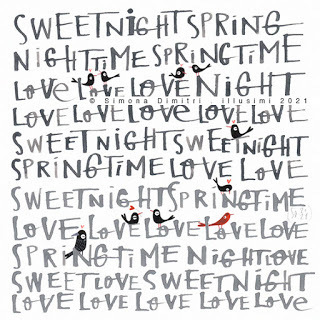 SWEETNiGHTSPRING
NIGHTTiMESPRiNGTiME
LOVE LOVE LOVE NiGHT
© Simona Dimitri - illusimi 2021
LOVE LOVE LOVE LOVE LOVE
SWEETNiGHTSWEETNiGHT
SPRiNGTiME LOVE LOVE
SWEETNiGHTSPRiNGTiME
LOVE LOVE LOVE LOVE LOVE
SPRiNGTiME NiGHTLOVE
SWEETLOVE SWEETNiGHT
LOVE LOVE LOVE LOVE LOVE